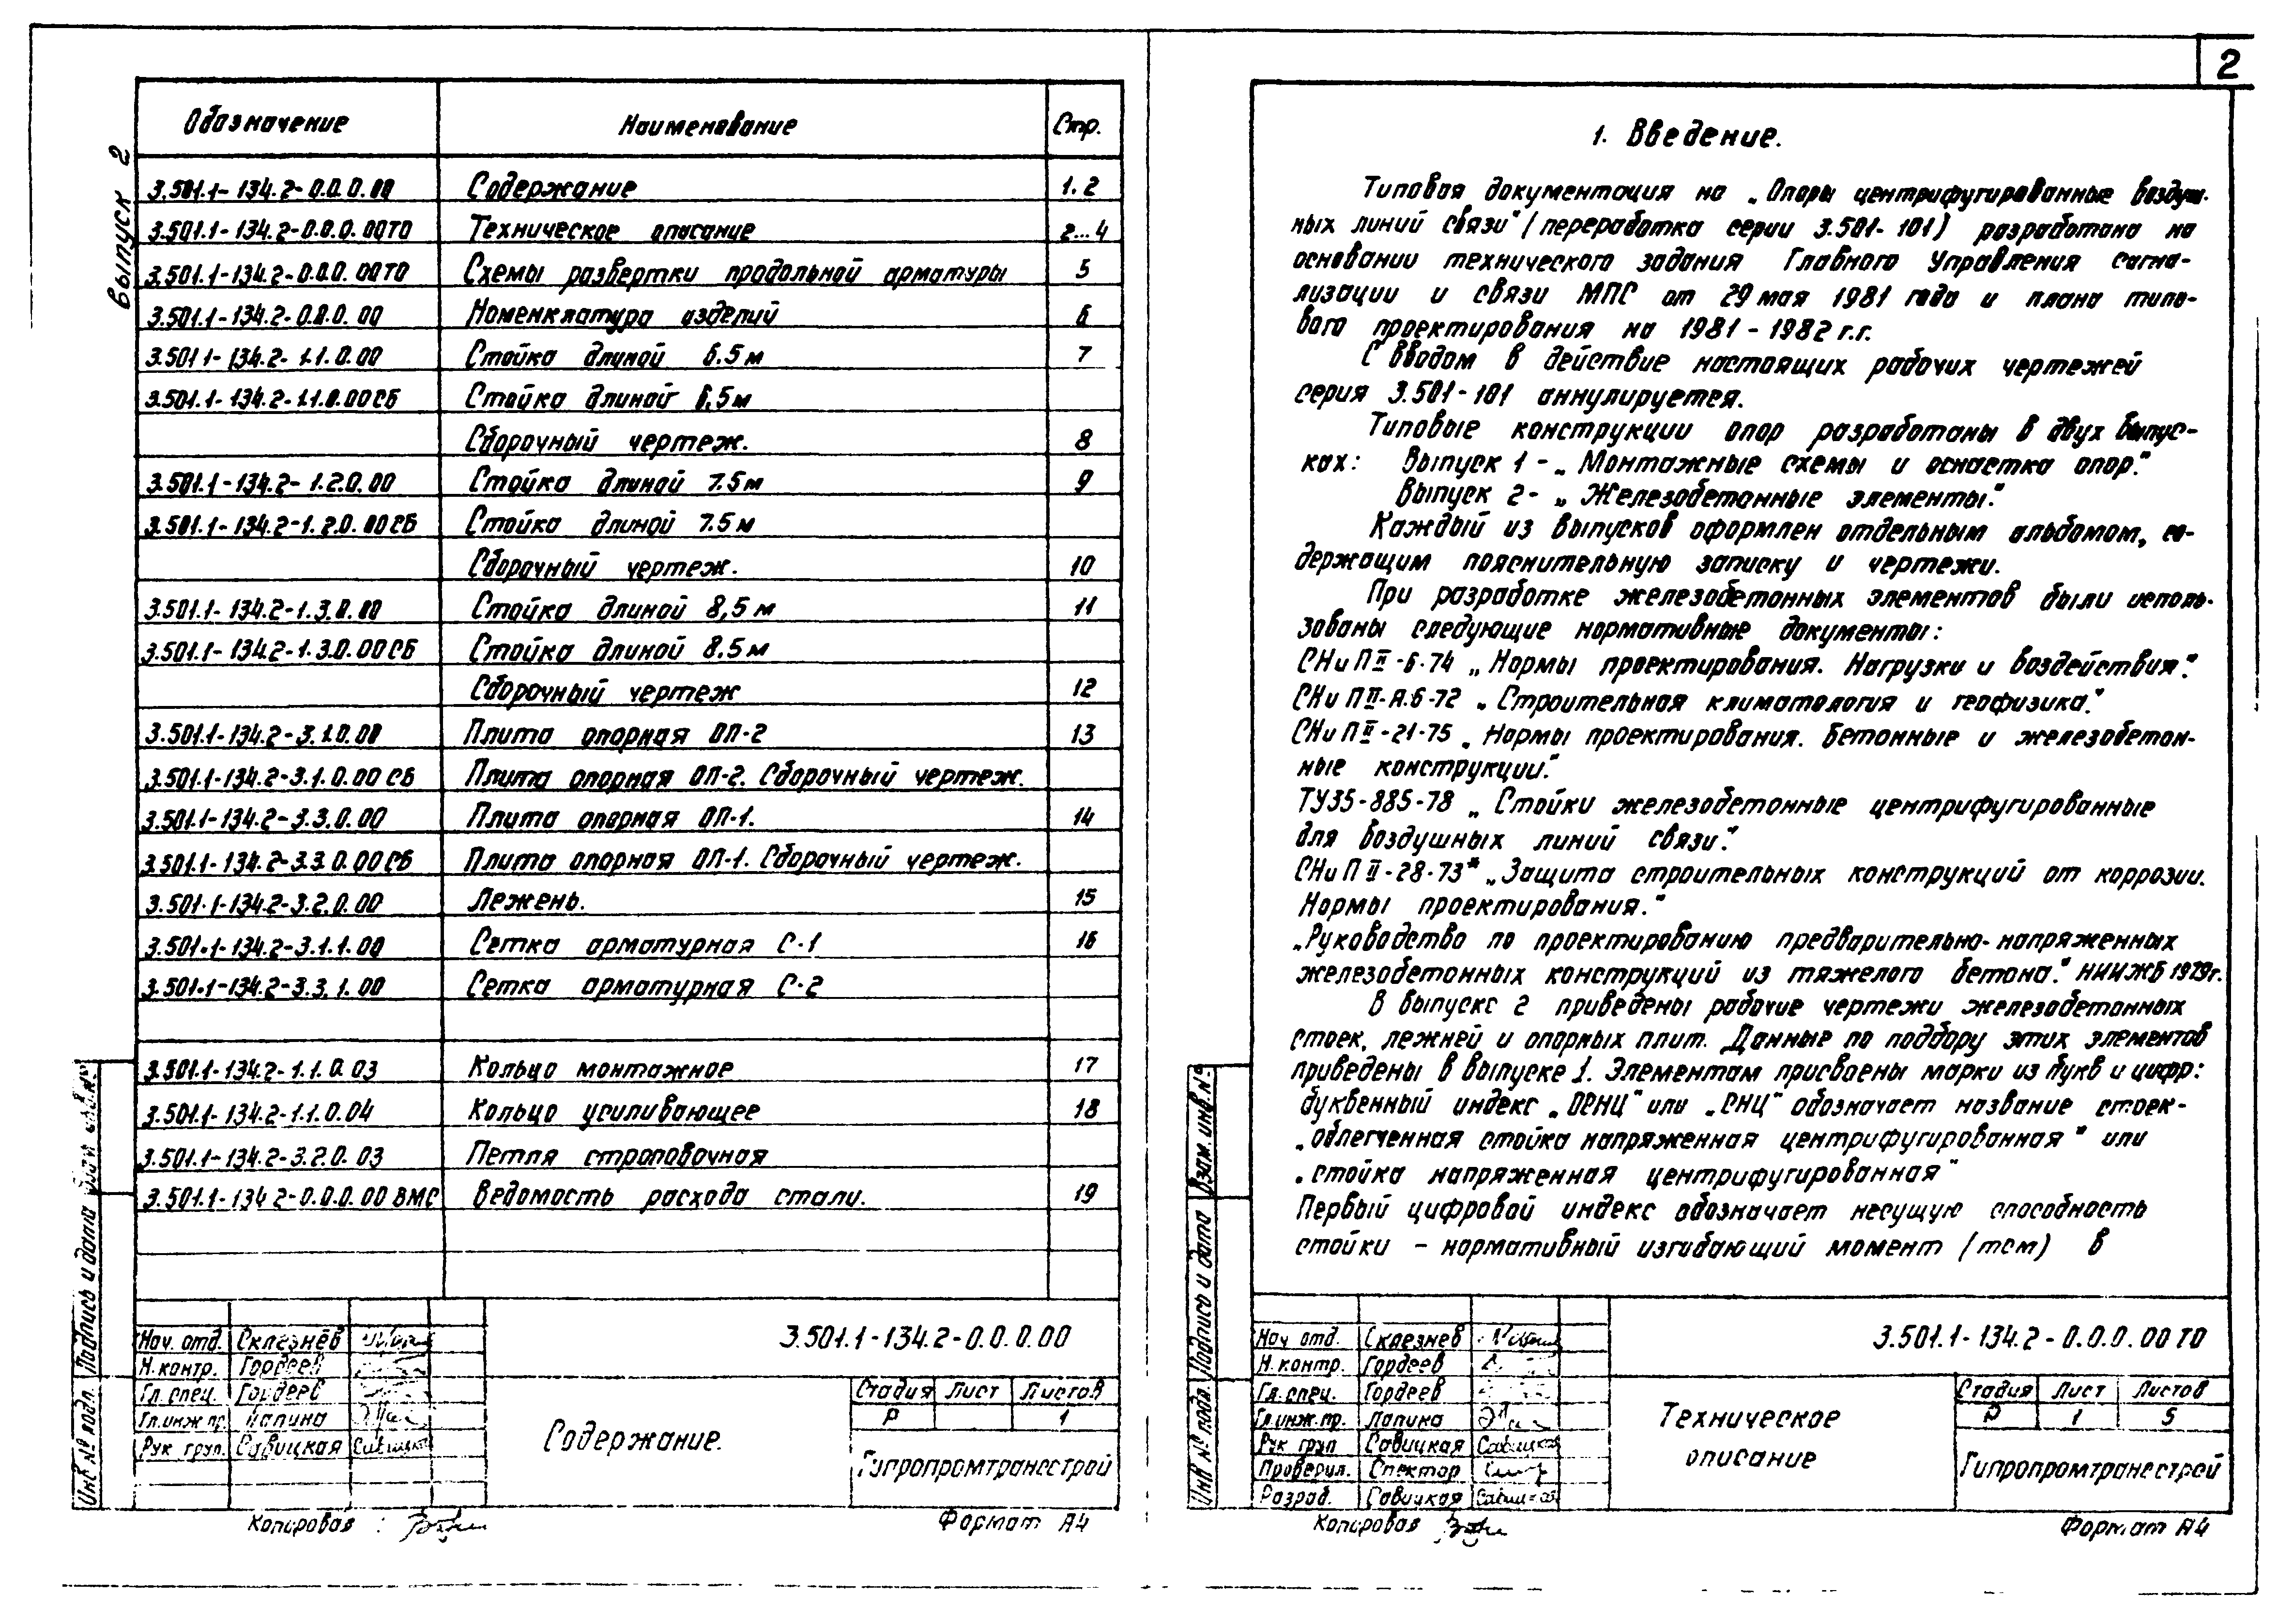 2
Выпуск 2
Обозначение Наименование Стр.
3.501.1-134.2-0.0.0.00 Содержание 1.2
3.501.1-134.2-0.0.0.00ТО Техническое описание 2...4
3.501.1-134.2-0.0.0.00ТО Схемы развертки продольной арматуры 5
3.501.1-134.2-0.0.0.00 Номенклатура изделий 6
3.501.1-134.2-1.1.0.00 Стойка длиной 6.5м 7
3.501.1-134.2-1.1.0.00СБ Стойка длиной 6,5м
Сборочный чертеж. 8
3.501.1-134.2-1.2.0.00 Стойка длиной 7.5м 9
3.501.1-134.2-1.2.0.00СБ Стойка длиной 7.5м
Сборочный чертеж. 10
3.501.1-134.2-1.3.0.00 Стойка длиной 8,5м 11
3.501.1-134.2-1.3.0.00СБ Стойка длиной 8.5м
Сборочный чертеж 12
3.501.1-134.2-3.1.0.00 Плита опорная ОП-2 13
3.501.1-134.2-3.1.0.00СБ Плита опорная ОП-2. Сборочный чертеж.
3.501.1-134.2-3.3.0.00 Плита опорная ОП-1. 14
3.501.1-134.2-3.3.0.00СБ Плита опорная ОП-1. Сборочный чертеж.
3.501.1-134.2-3.2.0.00 Лежень. 15
3.501.1-134.2-3.1.1.00 Сетка арматурная С-1 16
3.501.1-134.2-3.3.1.00 Сетка арматурная С-2
3.501.1-134.2-1.1.0.03 Кольцо монтажное 17
3.501.1-134.2-1.1.0.04 Кольцо усиливающее 18
3.501.1-134.2-3.2.0.03 Петля строповочная
3.501.1-134.2-0.0.0.00ВМС Ведомость расхода стали. 19
Инв № подл. Подпись и дата
Нач. отд. Склезнёв
Н.контр. Гордеев
Гл.спец. Гордеев
Гл.инж.пр. Лапина
Рук груп. Савицкая
3.501.1-134.2-0.0.0.00
Содержание.
Стадия Лист Листов
Р 1
Гипропромтрансстрой
Копировал :
Формат А4
1. Введение.
Типовая документация на „Опоры центрифугированные воздуш-
ных линий связи" (переработка серии 3.501-101) разработана на
основании технического задания Главного Управления сигна-
лизации и связи МПС от 29 мая 1981 года и плана типо-
вого проектирования на 1981-1982 г.г.
С вводом в действие настоящих рабочих чертежей
серия 3.501-101 аннулируется.
Типовые конструкции опор разработаны в двух выпус-
ках: Выпуск 1 - „Монтажные схемы и оснастка опор."
Выпуск 2- „Железобетонные элементы."
Каждый из выпусков оформлен отдельным альбомом, со-
держащим пояснительную записку и чертежи.
При разработке железобетонных элементов были исполь-
зованы следующие нормативные документы:
СНиП II-6-74 „Нормы проектирования. Нагрузки и воздействия."
СНиП II-А.6-72 „Строительная климатология и геофизика."
СНиП II-21-75 „Нормы проектирования. Бетонные и железобетон-
ные конструкции."
ТУ35-885-78 „Стойки железобетонные центрифугированные
для воздушных линий связи."
СНиП II-28-73* „Защита строительных конструкций от коррозии.
Нормы проектирования."
„Руководство по проектированию предварительно-напряженных
железобетонных конструкций из тяжелого бетона." НИИЖБ 1979г.
В выпуске 2 приведены рабочие чертежи железобетонных
стоек, лежней и опорных плит. Данные по подбору этих элементов
приведены в выпуске 1. Элементам присвоены марки из букв и цифр:
буквенный индекс „ОСНЦ" или „СНЦ" обозначает название стоек-
„облегченная стойка напряженная центрифугированная" или
„стойка напряженная центрифугированная"
Первый цифровой индекс обозначает несущую способность
стойки - нормативный изгибающий момент (тсм) в
Инв № подл. Подпись и дата Взам.инв.№
Нач отд. Склезнев
Н.контр. Гордеев
Гл.спец. Гордеев
Гл.инж.пр. Лапина
Рук груп Савицкая
Проверил. Спектор
Разраб. Савицкая
3.501.1-134.2-0.0.0.00ТО
Техническое
описание
Стадия Лист Листов
Р 1 5
Гипропромтрансстрой
Копировал
Формат А4